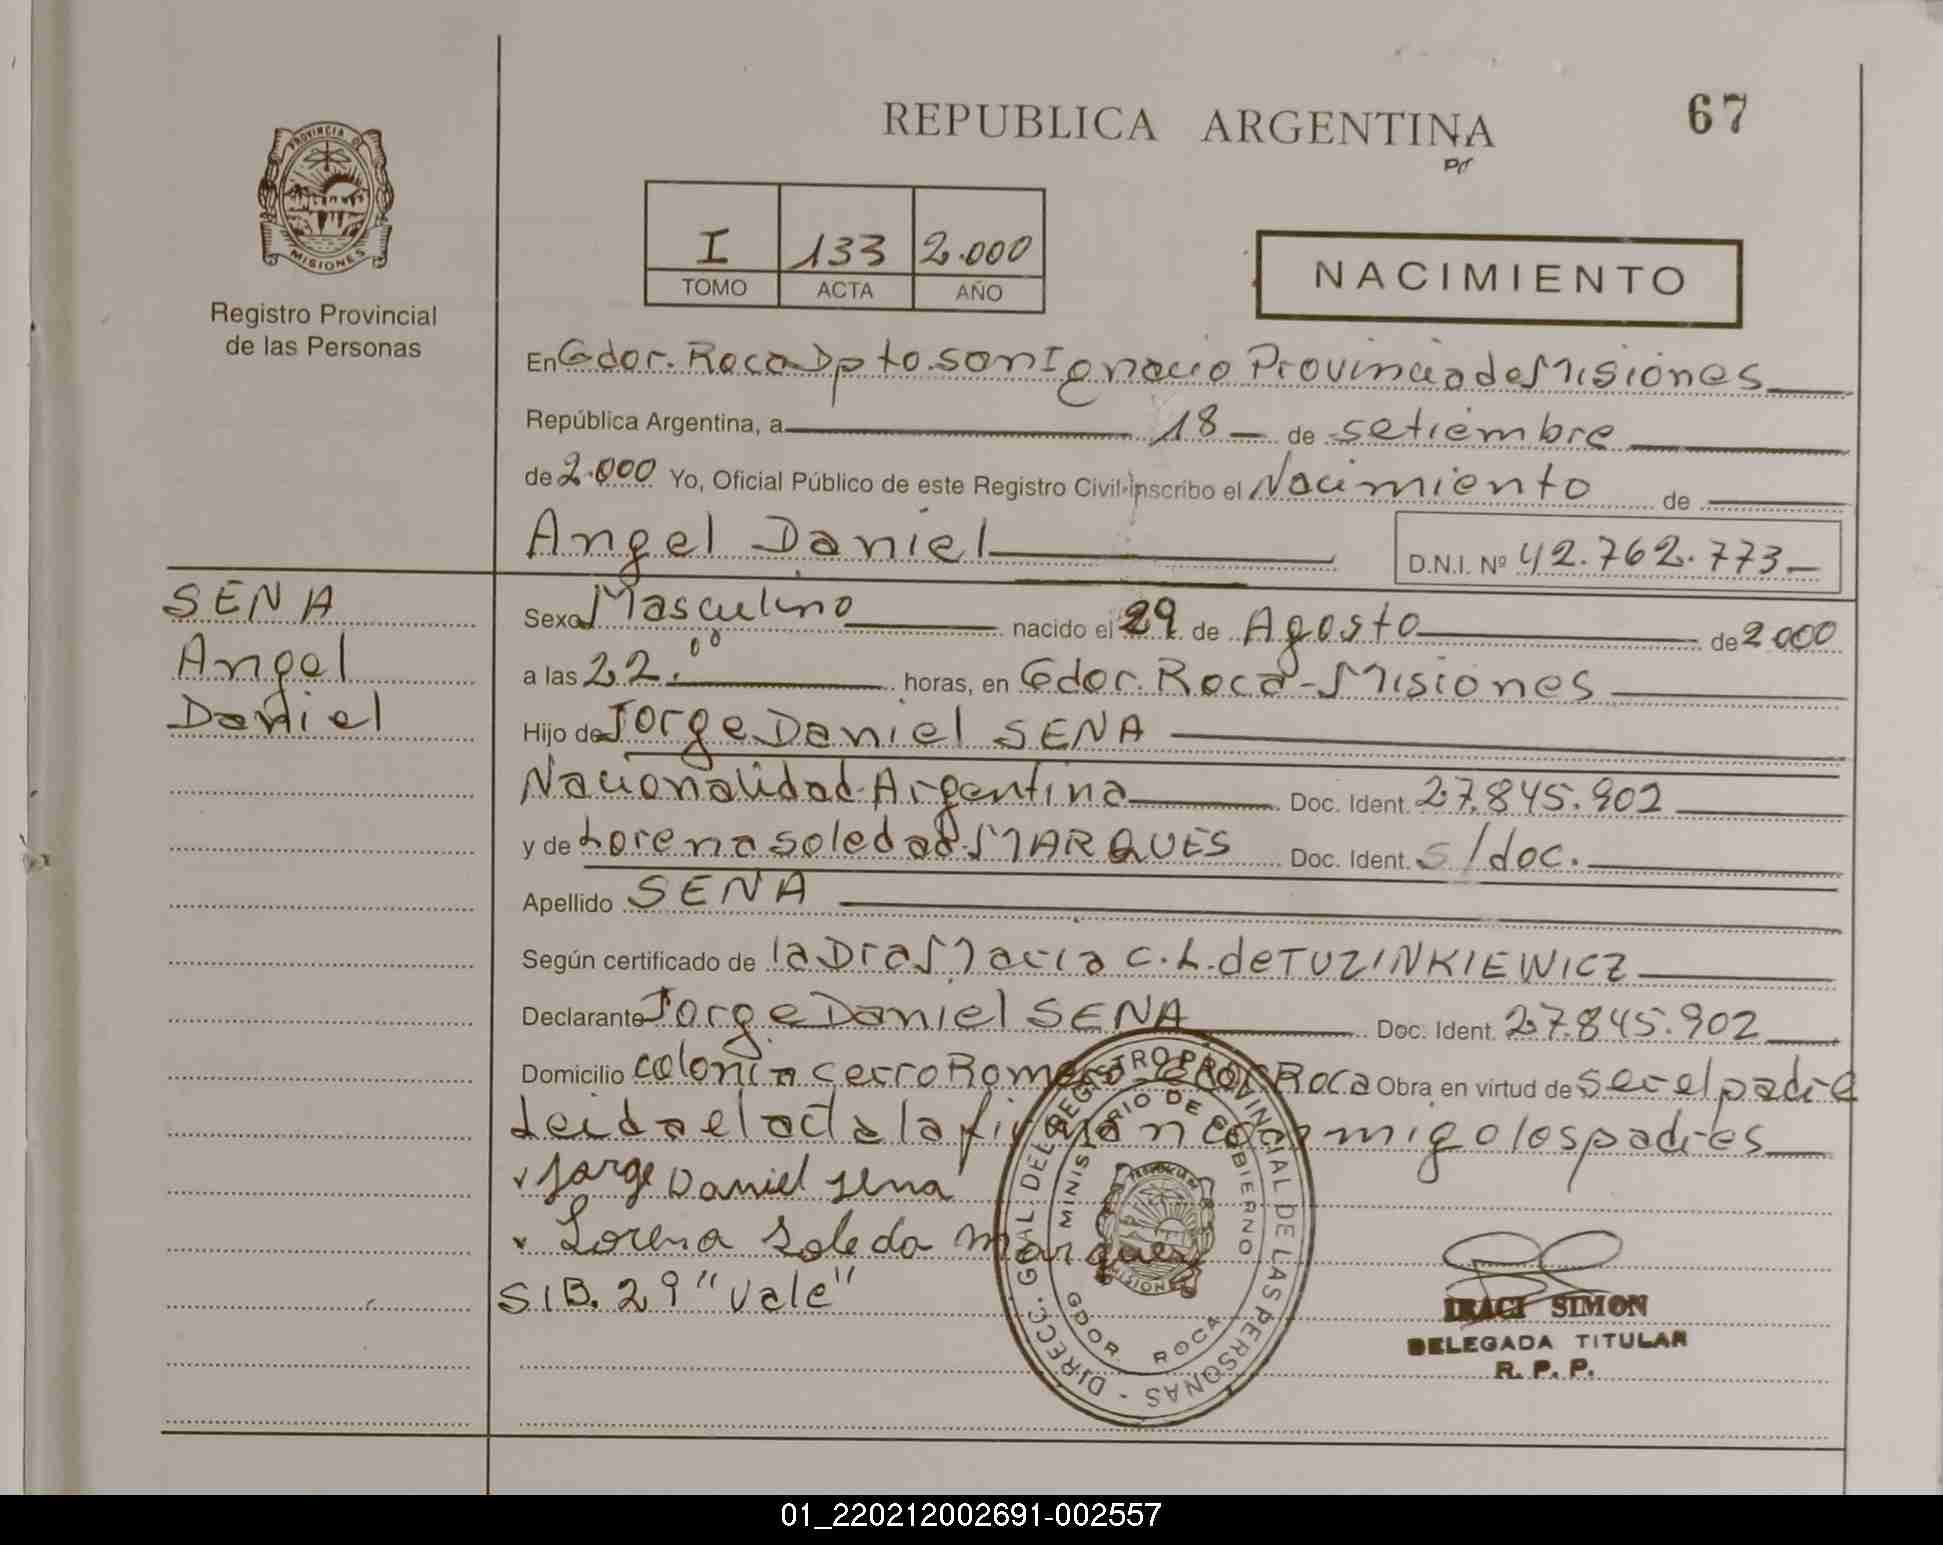 REPUBLICA ARGENTINA
67
PROVINCIA D
MISIONES
Registro Provincial
de las Personas
I 133 2.000
TOMO ACTA AÑO
NACIMIENTO
En Gdor. Roca Dpto. San Ignacio Provincia de Misiones
República Argentina, a 18 de setiembre
de 2.000 Yo, Oficial Público de este Registro Civil inscribo el Nacimiento de
Angel Daniel
D.N.I. Nº 42.762.773
SENA
Angel
Daniel
Sexo Masculino nacido el 29 de Agosto de 2000
a las 22:00 horas, en Gdor. Roca - Misiones
Hijo de Jorge Daniel SENA
Nacionalidad Argentina Doc. Ident. 27.845.902
y de Lorena Soledad MARQUES Doc. Ident. s/doc.
Apellido SENA
Según certificado de la Dra Maria C. L. de TUZINKIEWICZ
Declarante Jorge Daniel SENA Doc. Ident. 27.845.902
Domicilio colonia cerro Romero - Gdor Roca Obra en virtud de ser el padre
Leida el acta la firman conmigo los padres
Jorge Daniel sena
Lorena soleda marques
S/B. 29 "Vale"
DIRECC. GRAL. DEL REGISTRO PROVINCIAL DE LAS PERSONAS -
MINISTERIO DE GOBIERNO
MISIONES
GDOR ROCA
IRACI SIMON
DELEGADA TITULAR
R. P. P.
01_220212002691-002557